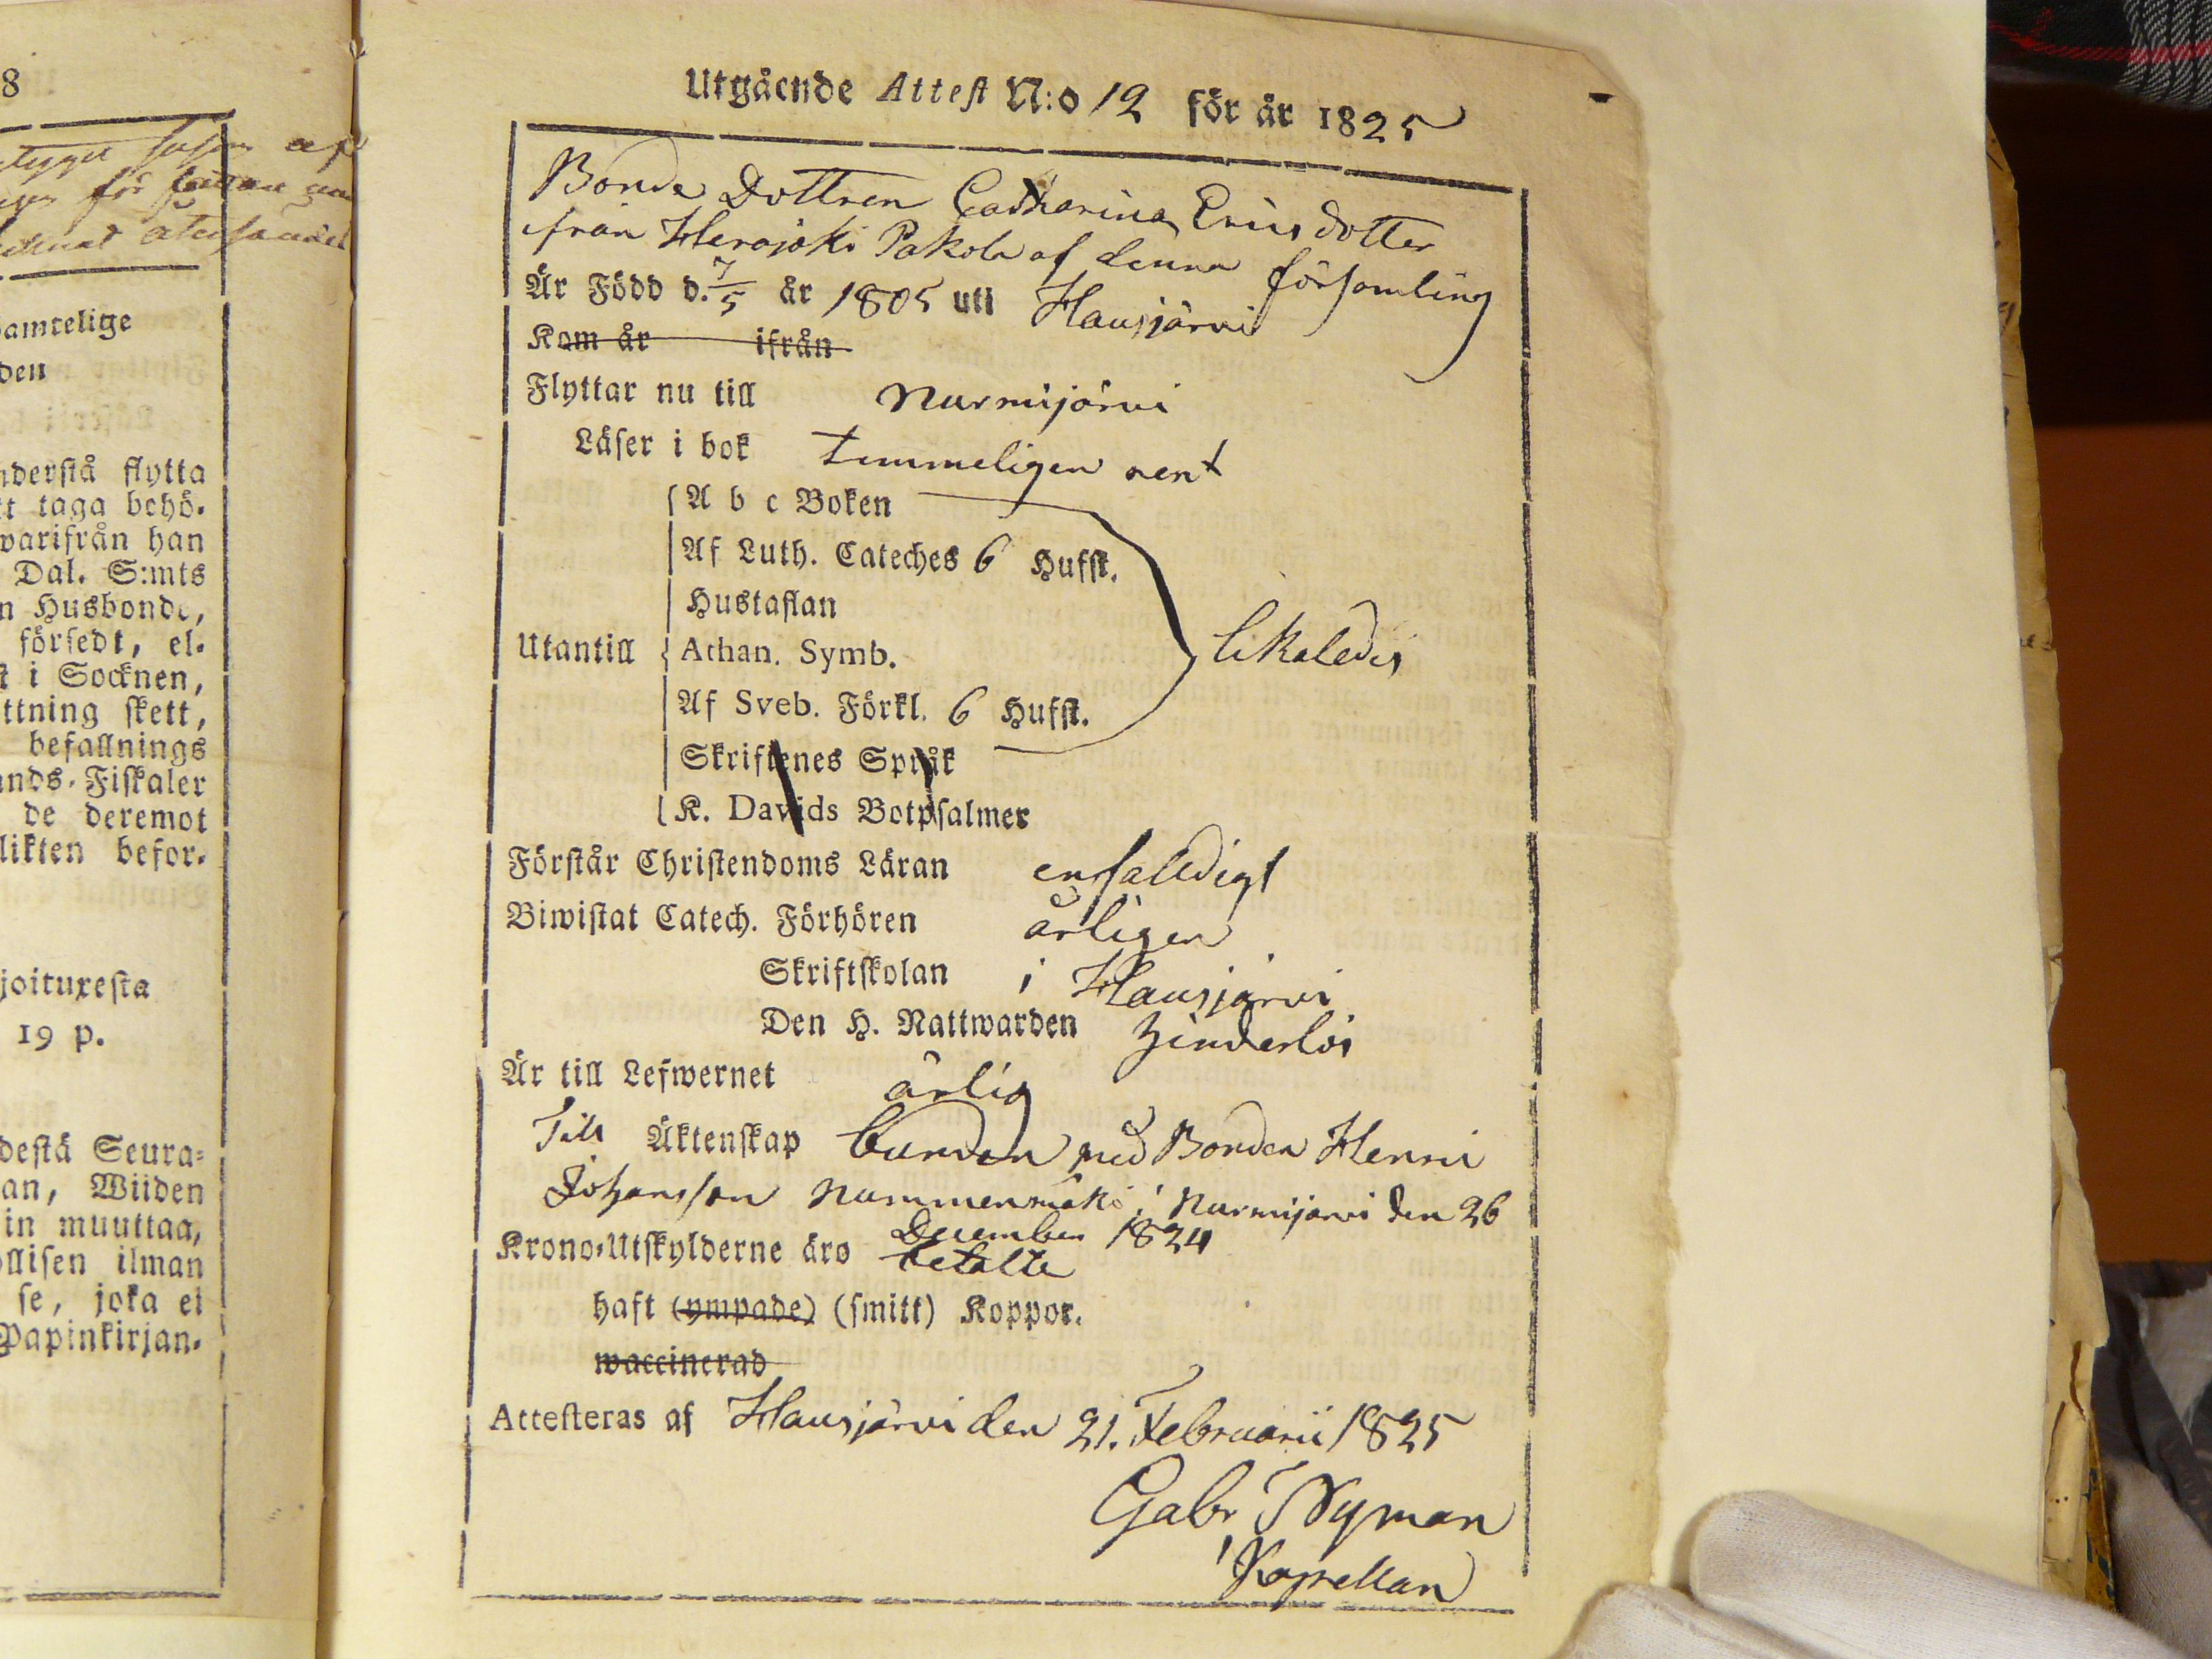 8
samtelige
den
nderstå flytta
tt taga behö-
warifrån han
Dal. S:mts
n Husbonde,
försedt, el-
t i Socknen,
ttning skett,
befallnings
ands-Fiskaler
de deremot
likten befor-
joituxesta
19 p.
destä Seura-
an, Wiiden
in muuttaa,
ollisen ilman
se, joka ei
Papinkirjan-
Utgående Attest N:o 12 för år 1825
Bonde Dottren Catharina Ericsdotter
ifrån Herajoki Pakola af denna församling
Är Född d. 7/5 år 1805 uti Hausjärvi
Kom år ifrån
Flyttar nu till Nurmijärvi
Läser i bok temmeligen rent
A b c Boken
Af Luth. Cateches 6 Hufst.
Hustaflan
Utantill Athan. Symb. likaledes
Af Sveb. Förkl. 6 Hufst.
Skriftenes Språk
K. Davids Botpsalmer
Förstår Christendoms Läran enfaldigt
Biwistat Catech. Förhören årligen
Skriftskolan i Hausjärvi
Den H. Nattwarden hinderlös
Är till Lefwernet ärlig
Till Äktenskap bunden med Bonden Henric
Johansson Nummenmäki i Nurmijärvi den 26
December 1824
Krono-Utskylderne äro betalte
haft (ympade) (smitt) Koppor.
waccinerad
Attesteras af Hausjärvi den 21. Februarii 1825
Gabr Nyman
Kapellan